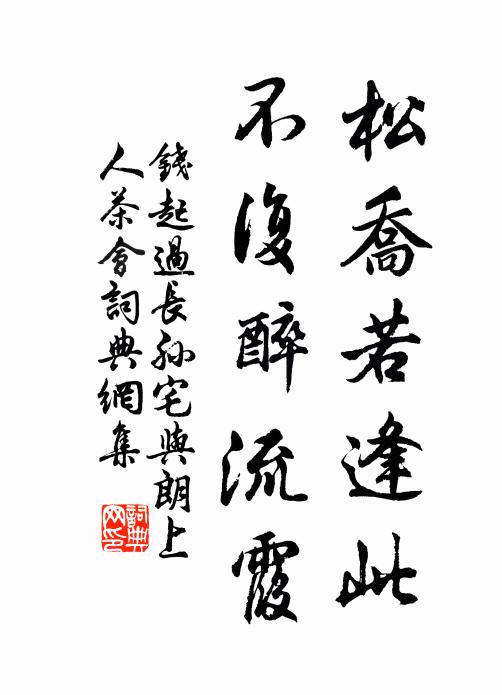 松喬若逢此
不復醉流霞
錢起過長孫宅與朗上
人茶會詞典網集
詞典
网印